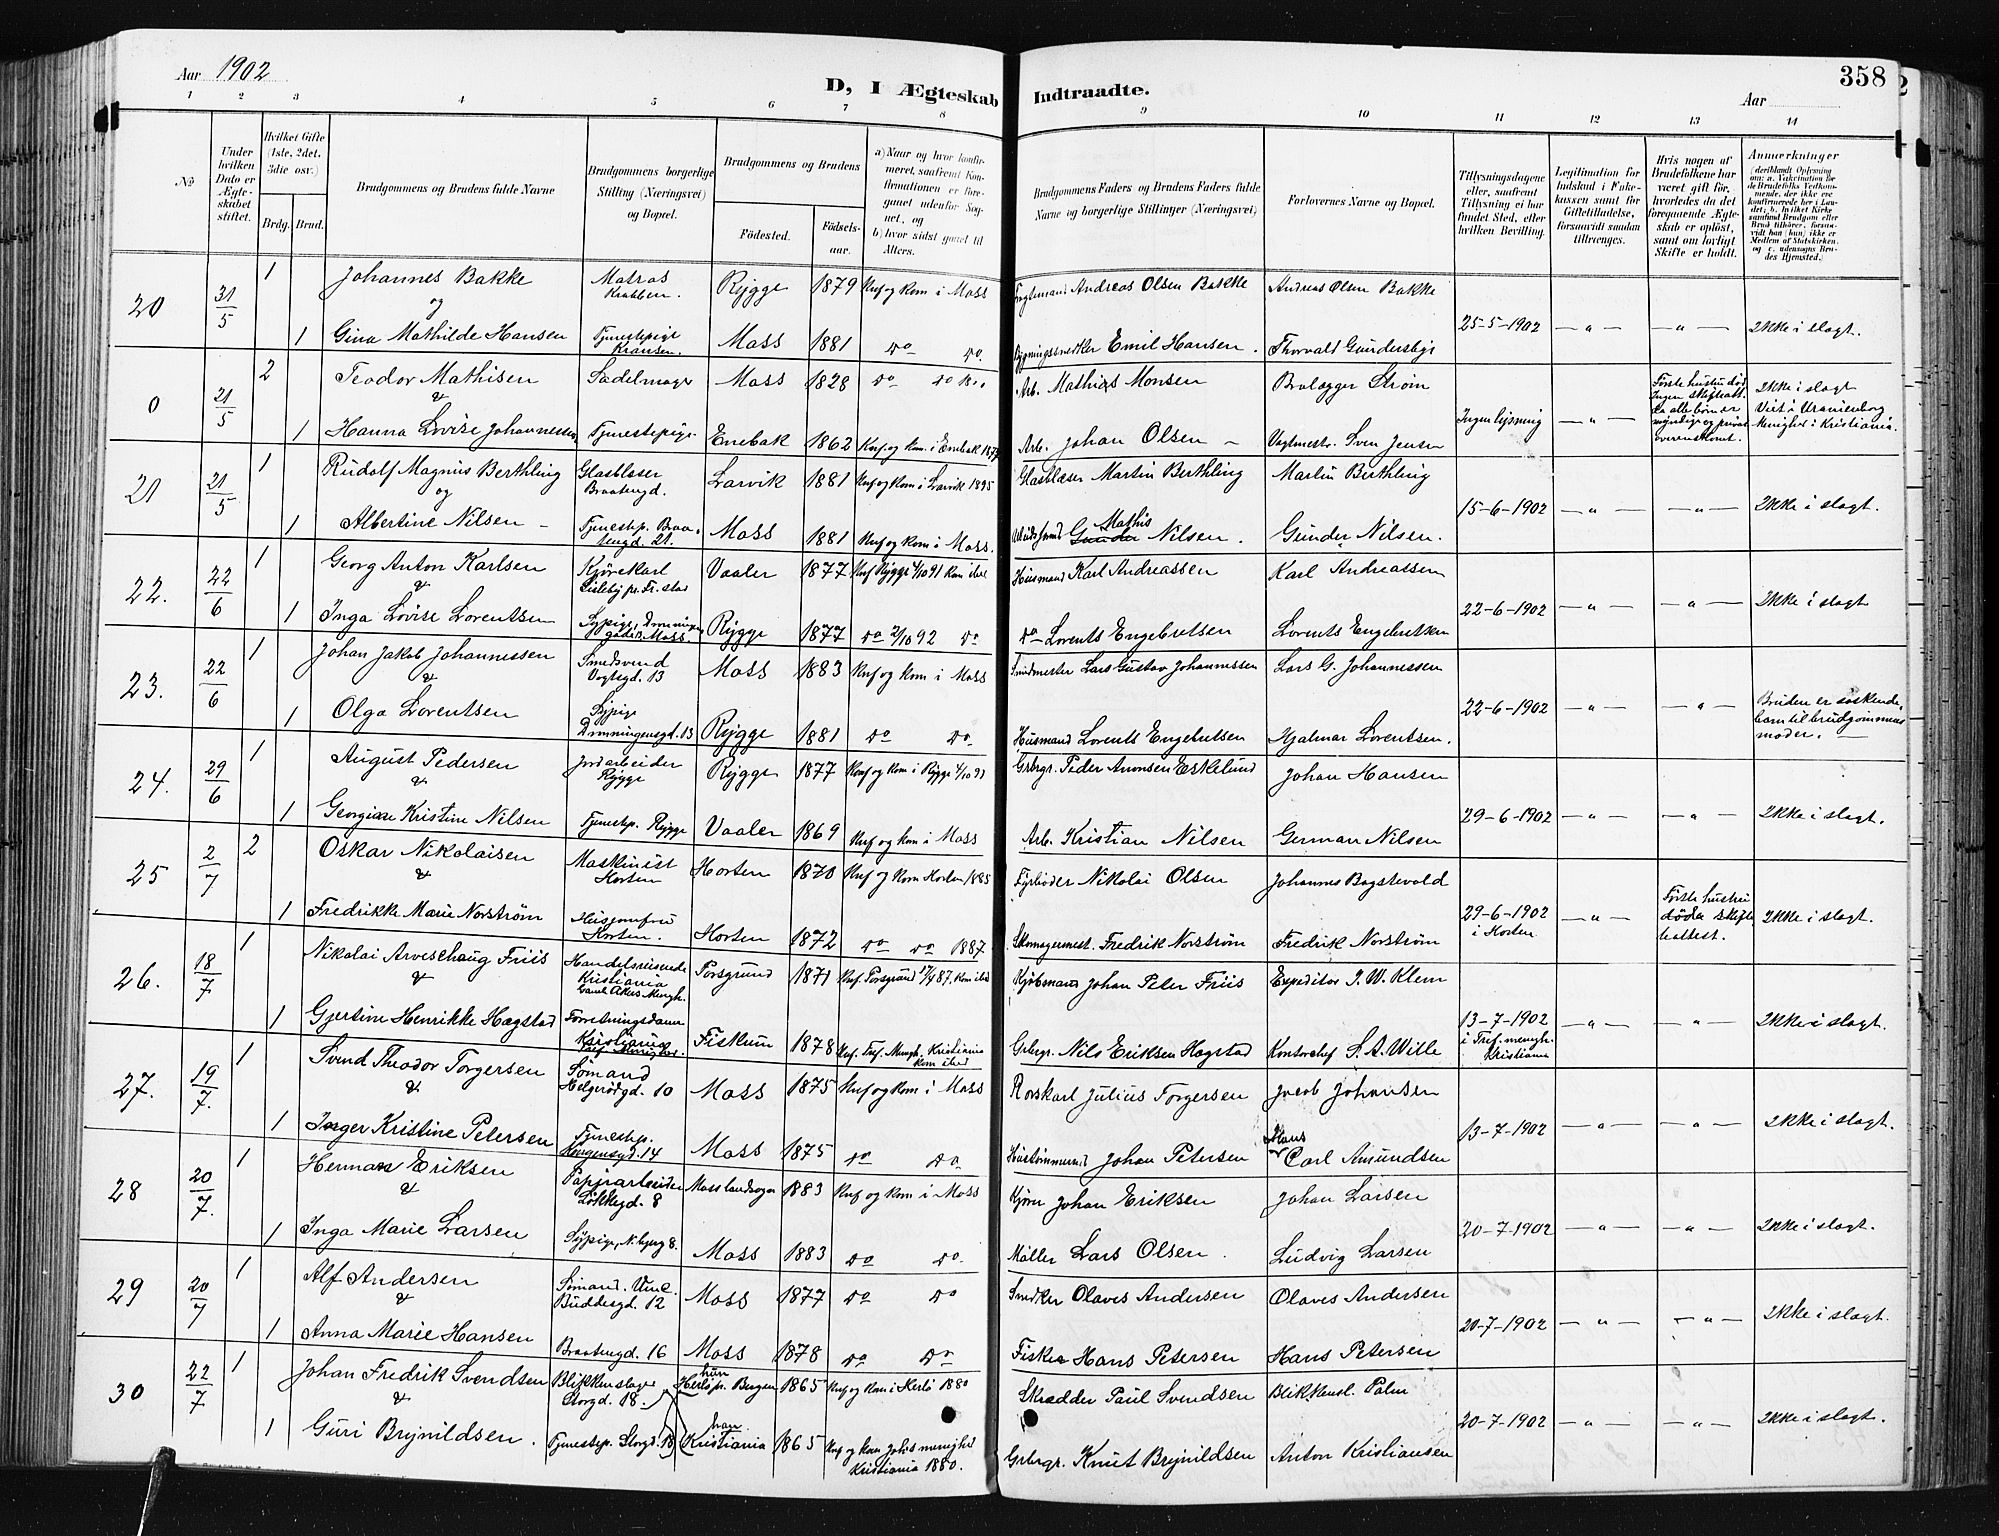 Aar 1902
D, I Ægteskab Indtraadte.
358
Aar
1 2 3 4 5 6 7 8 9 10 11 12 13 14
No
Under hvilken Dato er Ægteskabet stiftet.
Hvilket Gifte (1ste, 2det, 3die osv.)
Brdg. Brud.
Brudgommens og Brudens fulde Navne
Brudgommens borgerlige Stilling (Næringsvei) og Bopæl.
Brudgommens og Brudens
Fødested. Fødselsaar.
a) Naar og hvor konfirmeret, saafremt Konfirmationen er foregaaet udenfor Sognet, og
b) hvor sidst gaaet til Alters.
Brudgommens Faders og Brudens Faders fulde Navne og borgerlige Stillinger (Næringsvei)
Forlovernes Navne og Bopæl.
Tillysningsdagene eller, saafremt Tillysning ei har fundet Sted, efter hvilken Bevilling.
Legitimation for Indskud i Enkekassen samt for Giftetilladelse, forsaavidt saadan tiltrænges.
Hvis nogen af Brudefolkene har været gift før, hvorledes da det foregaaende Ægteskab er opløst, samt om lovligt Skifte er holdt.
Anmærkninger (deriblandt Oplysning om: a. Vaccination for de Brudefolks Vedkommende, der ikke ere konfirmerede her i Landet; b. hvilket Kirkesamfund Brudgom eller Brud tilhører, forsaavidt han (hun) ikke er Medlem af Statskirken, og c. udensogns Brudes Hjemsted.)
20 31/5 1 Johannes Bakke Matros Krabben. Rygge 1879 Knf og kom i Moss Andreas Olsen Bakke Andreas Olsen Bakke
og
1 Gina Mathilde Hansen Tjenestepige Kransen. Moss 1881 Do Do. Bygningssnedker Emil Hansen. Thorvald Gundersby 25-5-1902 — " — — " — Ikke i slægt.
0 21/5 2 Teodor Mathisen Sadelmager Moss 1828 Do Do Arb. Mathias Monsen Brolægger Strøm
&
1 Hanna Lovise Johannessen Tjenestepige Enebak 1862 Knf. og kom. i Enebak Arb. Johan Olsen — Vagtmestr. Sven Jensen Ingen lysning — " — Første hustru død Ingen skifteatt. da alle børn er myndige og privat overenskomst. Ikke i slægt Viet i Uranienborg Menighed i Kristiania.
21 21/5 1 Rudolf Magnus Berthling Glasblæser Braatengd. Larvik 1881 Knf og kom i Larvik 1895 Glasblæser Martin Berthling Martin Berthling
og
1 Albertine Nilsen — Tjenestep. Braatengd. 21. Moss 1881 Knf og kom i Moss. Mathis Gunder Nilsen. Gunder Nilsen. 15-6-1902 — " — — " — Ikke i slægt.
22. 22/6 1 Georg Anton Karlsen Kjørekarl Lisleby pr. Fr.stad Vaaler 1877 Knf Rygge 4/10 91 kom ibid Husmand Karl Andreassen Karl Andreassen
&
1 Inga Lovise Lorentsen Sypige, Dronningensgade 13 Moss Rygge 1877 Do 2/10 92 Do Do Lorents Engebretsen Lorents Engebretsen 22-6-1902 — " — — " — Ikke i slægt
23. 22/6 1 Johan Jakob Johannessen Smedsvend Vogtsgd. 13 Moss 1883 Knf og kom i Moss Smedmester Lars Gustav Johannessen Lars G. Johannessen
&
1 Olga Lorentsen Sypige Dronningensgd. 13 Rygge 1881 Do Do. Husmand Lorents Engebretsen Hjalmar Lorentsen. 22-6-1902 — " — — " — Bruden er søskendebarn til brudgommens moder. —
24. 29/6 1 August Pedersen Jordarbeider Rygge Rygge 1877 Konf og kom i Rygge 4/10 91 Grbrgr. Peder Aronsen Eskelund Johan Hansen
&
1 Georgine Kristine Nilsen Tjenestep. Rygge Vaaler 1869 Knf og kom i Moss Arb. Kristian Nilsen German Nilsen 29-6-1902 — " — — " — Ikke i slægt.
25 2/7 2 Oskar Nikolaisen Maskinist Horten Horten 1870 Knf og kom Horten 1885 Fyrbøder Nikolai Olsen Johannes Bogstevold
&
1 Fredrikke Marie Norstrøm Husjomfru Horten. Horten 1872 Do Do 1887 Skomagermest. Fredrik Norstrøm Fredrik Norstrøm 29-6-1902 i Horten — " — Første hustru døde skifteattest. Ikke i slægt.
26. 18/7 1 Nikolai Arveschoug Friis Handelsreisende Kristiania Gamle Akers Mengh. Porsgrund 1871 Knf. Porsgrund 17/4 87. kom ibid Kjøbmand Johan Peter Friis Expeditør J. W. Klem
&
1 Gjertine Henrikke Hægstad Forretningsdame Kristiania Tref. Menighed. Fiskum 1878 Knf. Tref. Mengh. Kristiania kom ibid Grbrgr. Nils Eriksen Hagstad Kontorchef S. A. Wille 13-7-1902 i Tref. mengh. Kristiania — " — — " — Ikke i slægt.
27. 19/7. 1 Svend Theodor Torgersen Sømand Helgerødgd. 10 Moss 1875 Knf og kom i Moss Rorskarl Julius Torgersen Jacob Johansen
&
1 Inger Kristine Petersen Tjenestep. Kongensgd. 14 Moss 1875 Do Do. Hustømmermd Johan Petersen Hans Carl Amundsen 13-7-1902 — " — — " — Ikke i slægt.
28 20/7. 1 Herman Eriksen Papirarbeider Løkkegd. 8 Moss landsogn 1883 Knf og kom i Moss Kjører Johan Eriksen Johan Larsen
&
1 Inga Marie Larsen Sypige, N. bjerg 8. Moss 1883 Do Do. Møller Lars Olsen. Ludvig Larsen 20-7-1902 — " — — " — Ikke i slægt.
29 20/7 1 Alf Andersen Sømand. Buddesgd. 12 Moss 1877 Do Do Snedker Olaves Andersen Olaves Andersen
&
1 Anna Marie Hansen Braatengd. 16 Moss 1878 Do Do Fisker Hans Petersen Hans Petersen 20-7-1902 — " — — " — Ikke i slægt.
30 22/7 1 Johan Fredrik Svendsen Blikkenslager Storgd. 18. hun Herlø pr. Bergen 1865 Knf og kom i Herlø 1880 Skrædder Paul Svendsen Blikkensl. Palm
&
1 Guri Brynildsen. Tjenestep. Storgd. 18 han Kristiania 1865 Knf og kom Johs menighed Kristiania 1880. Grbrgr. Knut Brynildsen Anton Kristiansen 20-7-1902 — " — — " — Ikke i slægt.